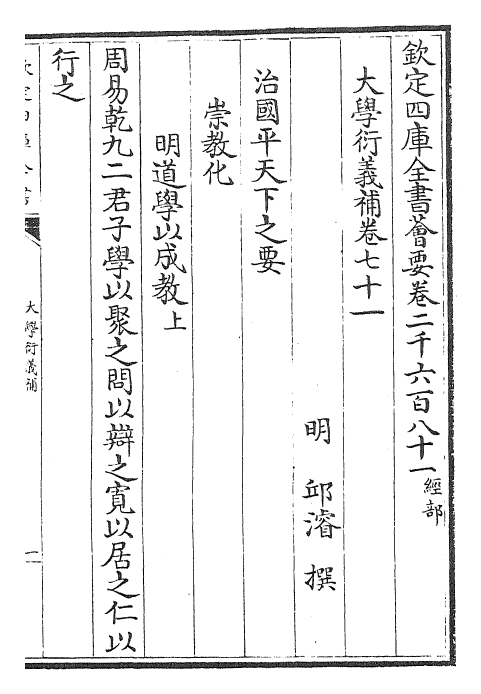 欽定四庫全書薈要卷二千六百八十一經部
大學衍義補卷七十一
明 邱濬 撰
治國平天下之要
崇教化
明道學以成教上
周易乾九二君子學以聚之問以辯之寛以居之仁以
行之
大學衍義補
一